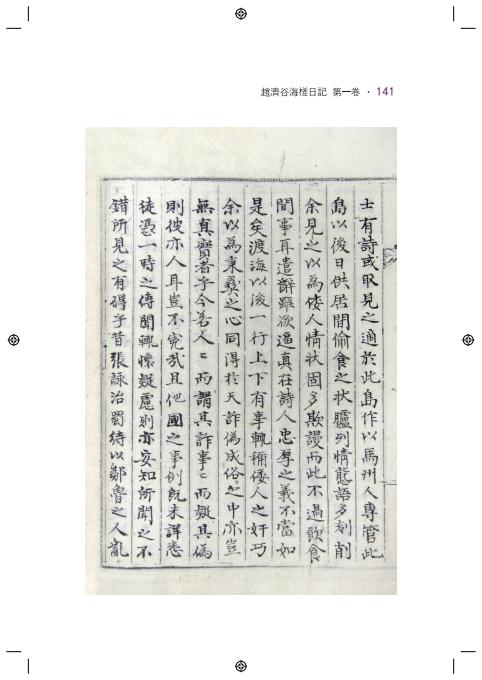 趙濟谷海槎日記 第一卷 · 141
士有詩或取見之適於此島作以馬州人專管此
島以後日供居間偷食之狀臚列情態語多刻削
余見之以為倭人情狀固多欺謾而此不過飮食
間事耳遣辭雖欲逼真在詩人忠厚之義不當如
是矣渡海以後一行上下有事輒稱倭人之奸巧
余以為秉彛之心同得於天詐偽成俗之中亦豈
無真實者乎今若人〻而謂其詐事〻而疑其偽
則彼亦人耳豈不寃哉且他國之事例旣未詳悉
徒憑一時之傳聞輒懷疑慮則亦安知所聞之不
錯所見之有得乎昔張詠治蜀待以鄒魯之人亂